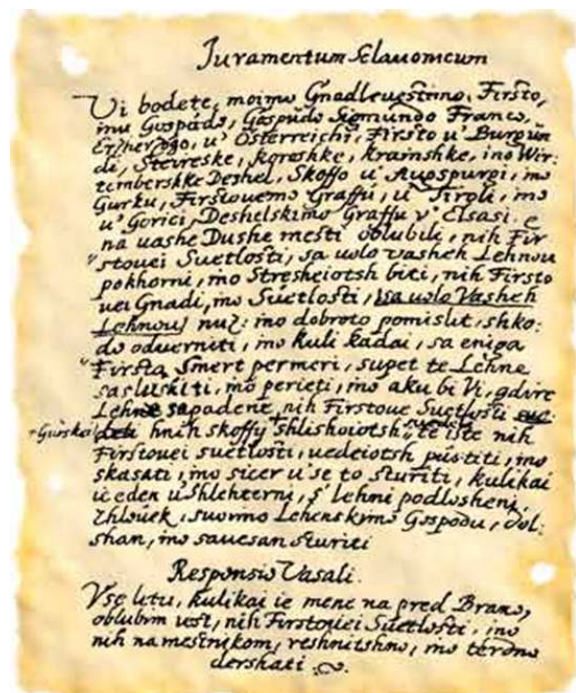 Juramentum Sclauonicum
Vi bodete, moimu Gnadleuestnimo, Firsto,
mu Gospůdo, Gospůdo Sigmundo Franco,
Erzherzogo, u' Österreichi, Firsto u' Burgun
di, Steyreske, koroshke, krainshke, ino Wir:
tembershke Deshel, Skoffo u' Auspurgi, ino
Gurku, Firstouemo Graffu, u' Tiroli, ino
u' Gorici, Deshelskimo Graffu v' Elsasi. e
na uashe Dushe mesti oblubili, nih Fir
stouei Suetlosti, sa uolo vasheh Lehnou
pokhorni, ino Stresheiotsh biti, nih Firsto
uei Gnadi, ino Suetlosti, sa uolo Vasheh
Lehnou nuz: ino dobroto pomislit, shko:
do oduerniti, ino kuli kadai, sa eniga
Firsta, Smert permeri, supet te Lehne
sasluskiti, ino perieti, ino aku bi Vi, gdire
Lehne sapadene, nih Firstoue Suetlosti
hnih skoffy shlishoiotsh, te iste nih
Firstouei suetlosti, uedeiotsh pustiti, ino
skasati, ino sicer u'se to sturiti, kulikai
ie eden ushlehterni, s' lehni podlosheni
zhlouek, suoimo Lehenskymo Gospodu, dol:
shan, ino sauesan sturiti
Responsio Vasali.
Vse letu, kulikai ie mene na pred Brano,
oblubim ust, nih Firstouei Suetlosti, ino
nih namestnikom, reshnitshno, ino terdno
dershati.